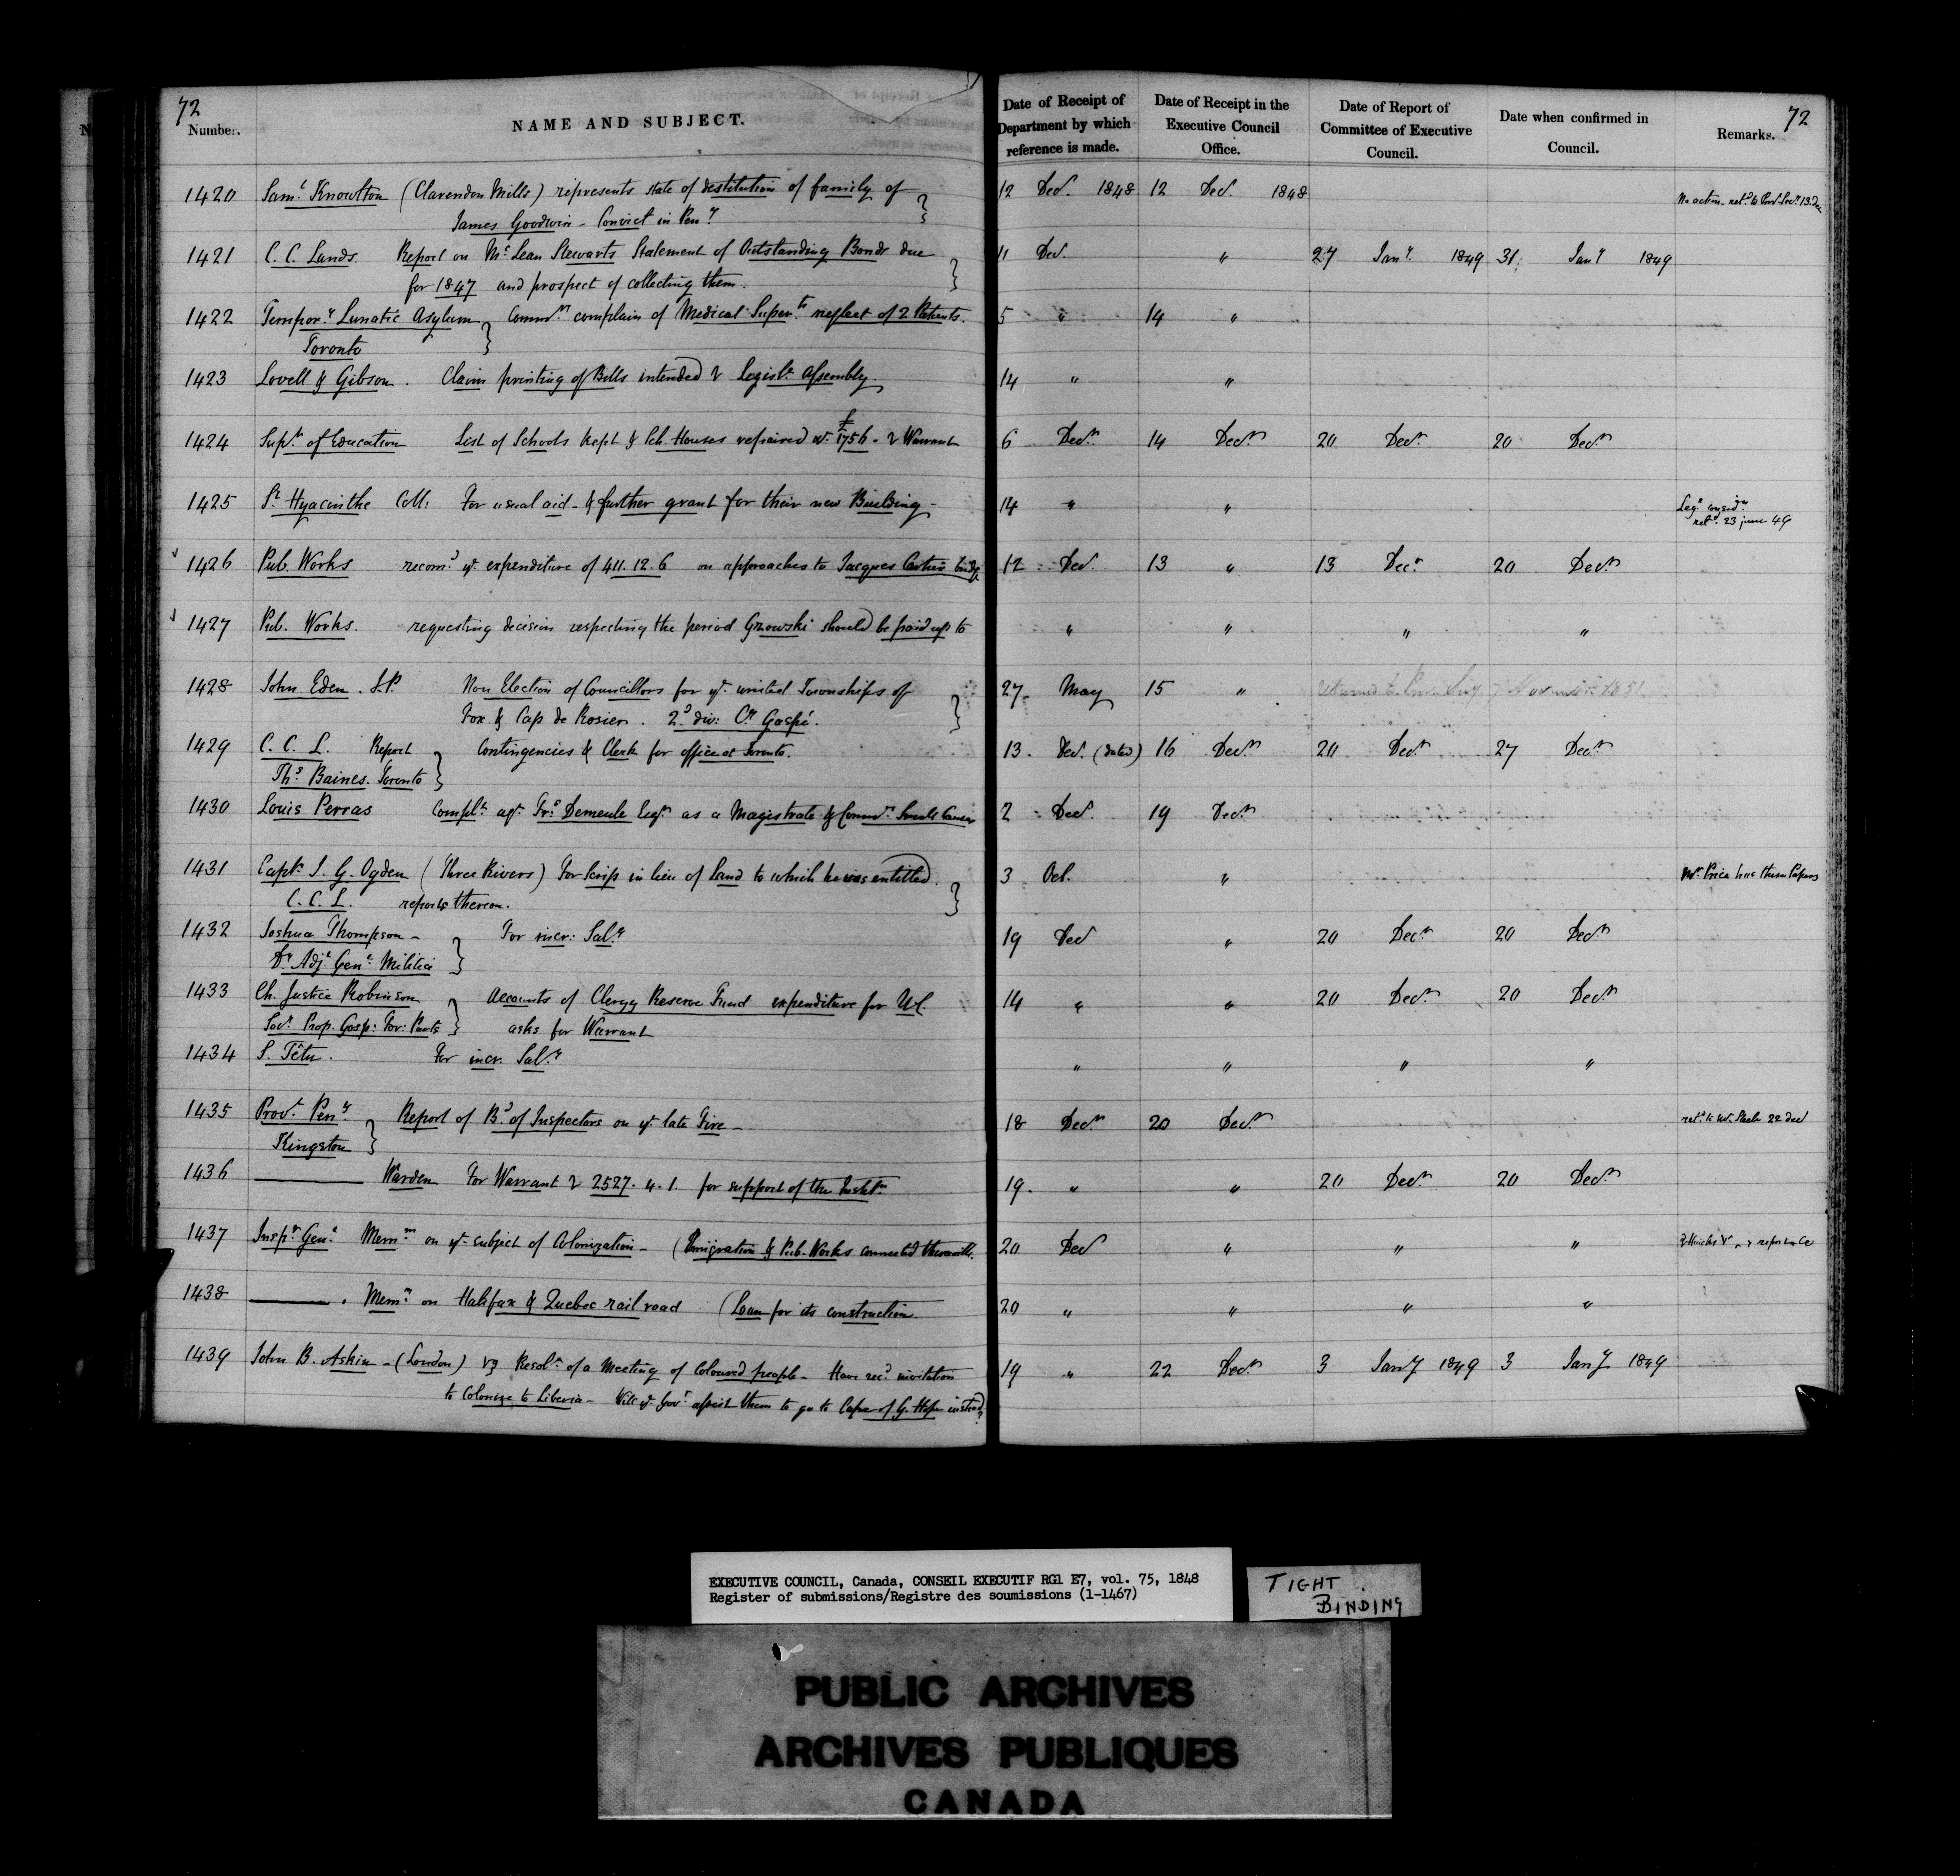 72
Number.
NAME AND SUBJECT.
Date of Receipt of Department by which reference is made.
Date of Receipt in the Executive Council Office.
Date of Report of Committee of Executive Council.
Date when confirmed in Council.
Remarks.
72
1420 Saml Knowlton (Clarendon Mills) represents state of destitution of family of 12 Decr 1848 12 Decr 1848 No action
James Goodwin - Convict in Peny
1421 C. C. Lands. Report on McLean Stewarts Statement of Outstanding Bonds due 11 Decr " 27 Jany 1849 31 Jany 1849
for 1847 and prospect of collecting them.
1422 Tempory Lunatic Asylum Commrs complain of Medical Supert neglect of 2 Patients. 5 " 14 "
Toronto
1423 Lovell & Gibson. Claim printing of Bills intended Legisle Assembly 14 " "
1424 Supt of Education List of Schools kept & Sch. Houses repaired £1756 - Warrant 6 Decr 14 Decr 20 Decr 20 Decr
1425 St Hyacinthe Coll: For usual aid - & further grant for their new Building - 14 " "
retd 23 june 49
1426 Pub. Works recomd ye expenditure of 411.12.6 on approaches to Jacques Cartier bridge 12 Decr 13 " 13 Decr 20 Decr
1427 Pub. Works. requesting decision respecting the period Gzowski should be paid up to " " " "
1428 John Eden. J.P. Non Election of Councillors for ye united Townships of 27 May 15 " returned to Prov. Secy 7 November 1851
Fox & Cap de Rosier. 2d div: Cy Gaspé.
1429 C. C. L. Report Contingencies & Clerk for office at Toronto. 13 Decr (dated) 16 Decr 20 Decr 27 Decr
Thos Baines. Toronto
1430 Louis Perras Complt agt Frs Demeule Esqr as a Magistrate & Commr Small Causes 2 Decr 19 Decr
1431 Capt J. G. Ogden (Three Rivers) For Scrip in lieu of Land to which he was entitled. 3 Oct. " Mr Price has these Papers
C. C. L. reports thereon.
1432 Joshua Thompson - For incr: Saly 19 Decr " 20 Decr 20 Decr
Dy Adjt Genl Militia
1433 Ch. Justice Robinson Accounts of Clergy Reserve Fund expenditure for U.C. 14 " " 20 Decr 20 Decr
Socy Prop. Gosp: For: Parts asks for Warrant
1434 S. Têtu. For incr. Saly " " " "
1435 Provl Peny Report of Bd of Inspectors on ye late Fire - 18 Decr 20 Decr 22 Decr
Kingston
1436 ——— Warden For Warrant 2527.4.1. for support of the Instn 19 " " 20 Decr 20 Decr
1437 Inspr Genl Memm on ye subject of Colonization - (Emigration & Pub. Works connected therewith. 20 Decr " " "
1438 ——— . Memm on Halifax & Quebec rail road (Loan for its construction. 20 " " " "
1439 John B. Askin - (London) Resoln of a Meeting of Coloured people - Have recd invitation 19 " 22 Decr 3 Jany 1849 3 Jany 1849
to Colonize to Liberia - Will ye Govt assist them to go to Cape of G. Hope instead?
EXECUTIVE COUNCIL, Canada, CONSEIL EXECUTIF RG1 E7, vol. 75, 1848
Register of submissions/Registre des soumissions (1-1467)
TIGHT
BINDING
PUBLIC ARCHIVES
ARCHIVES PUBLIQUES
CANADA